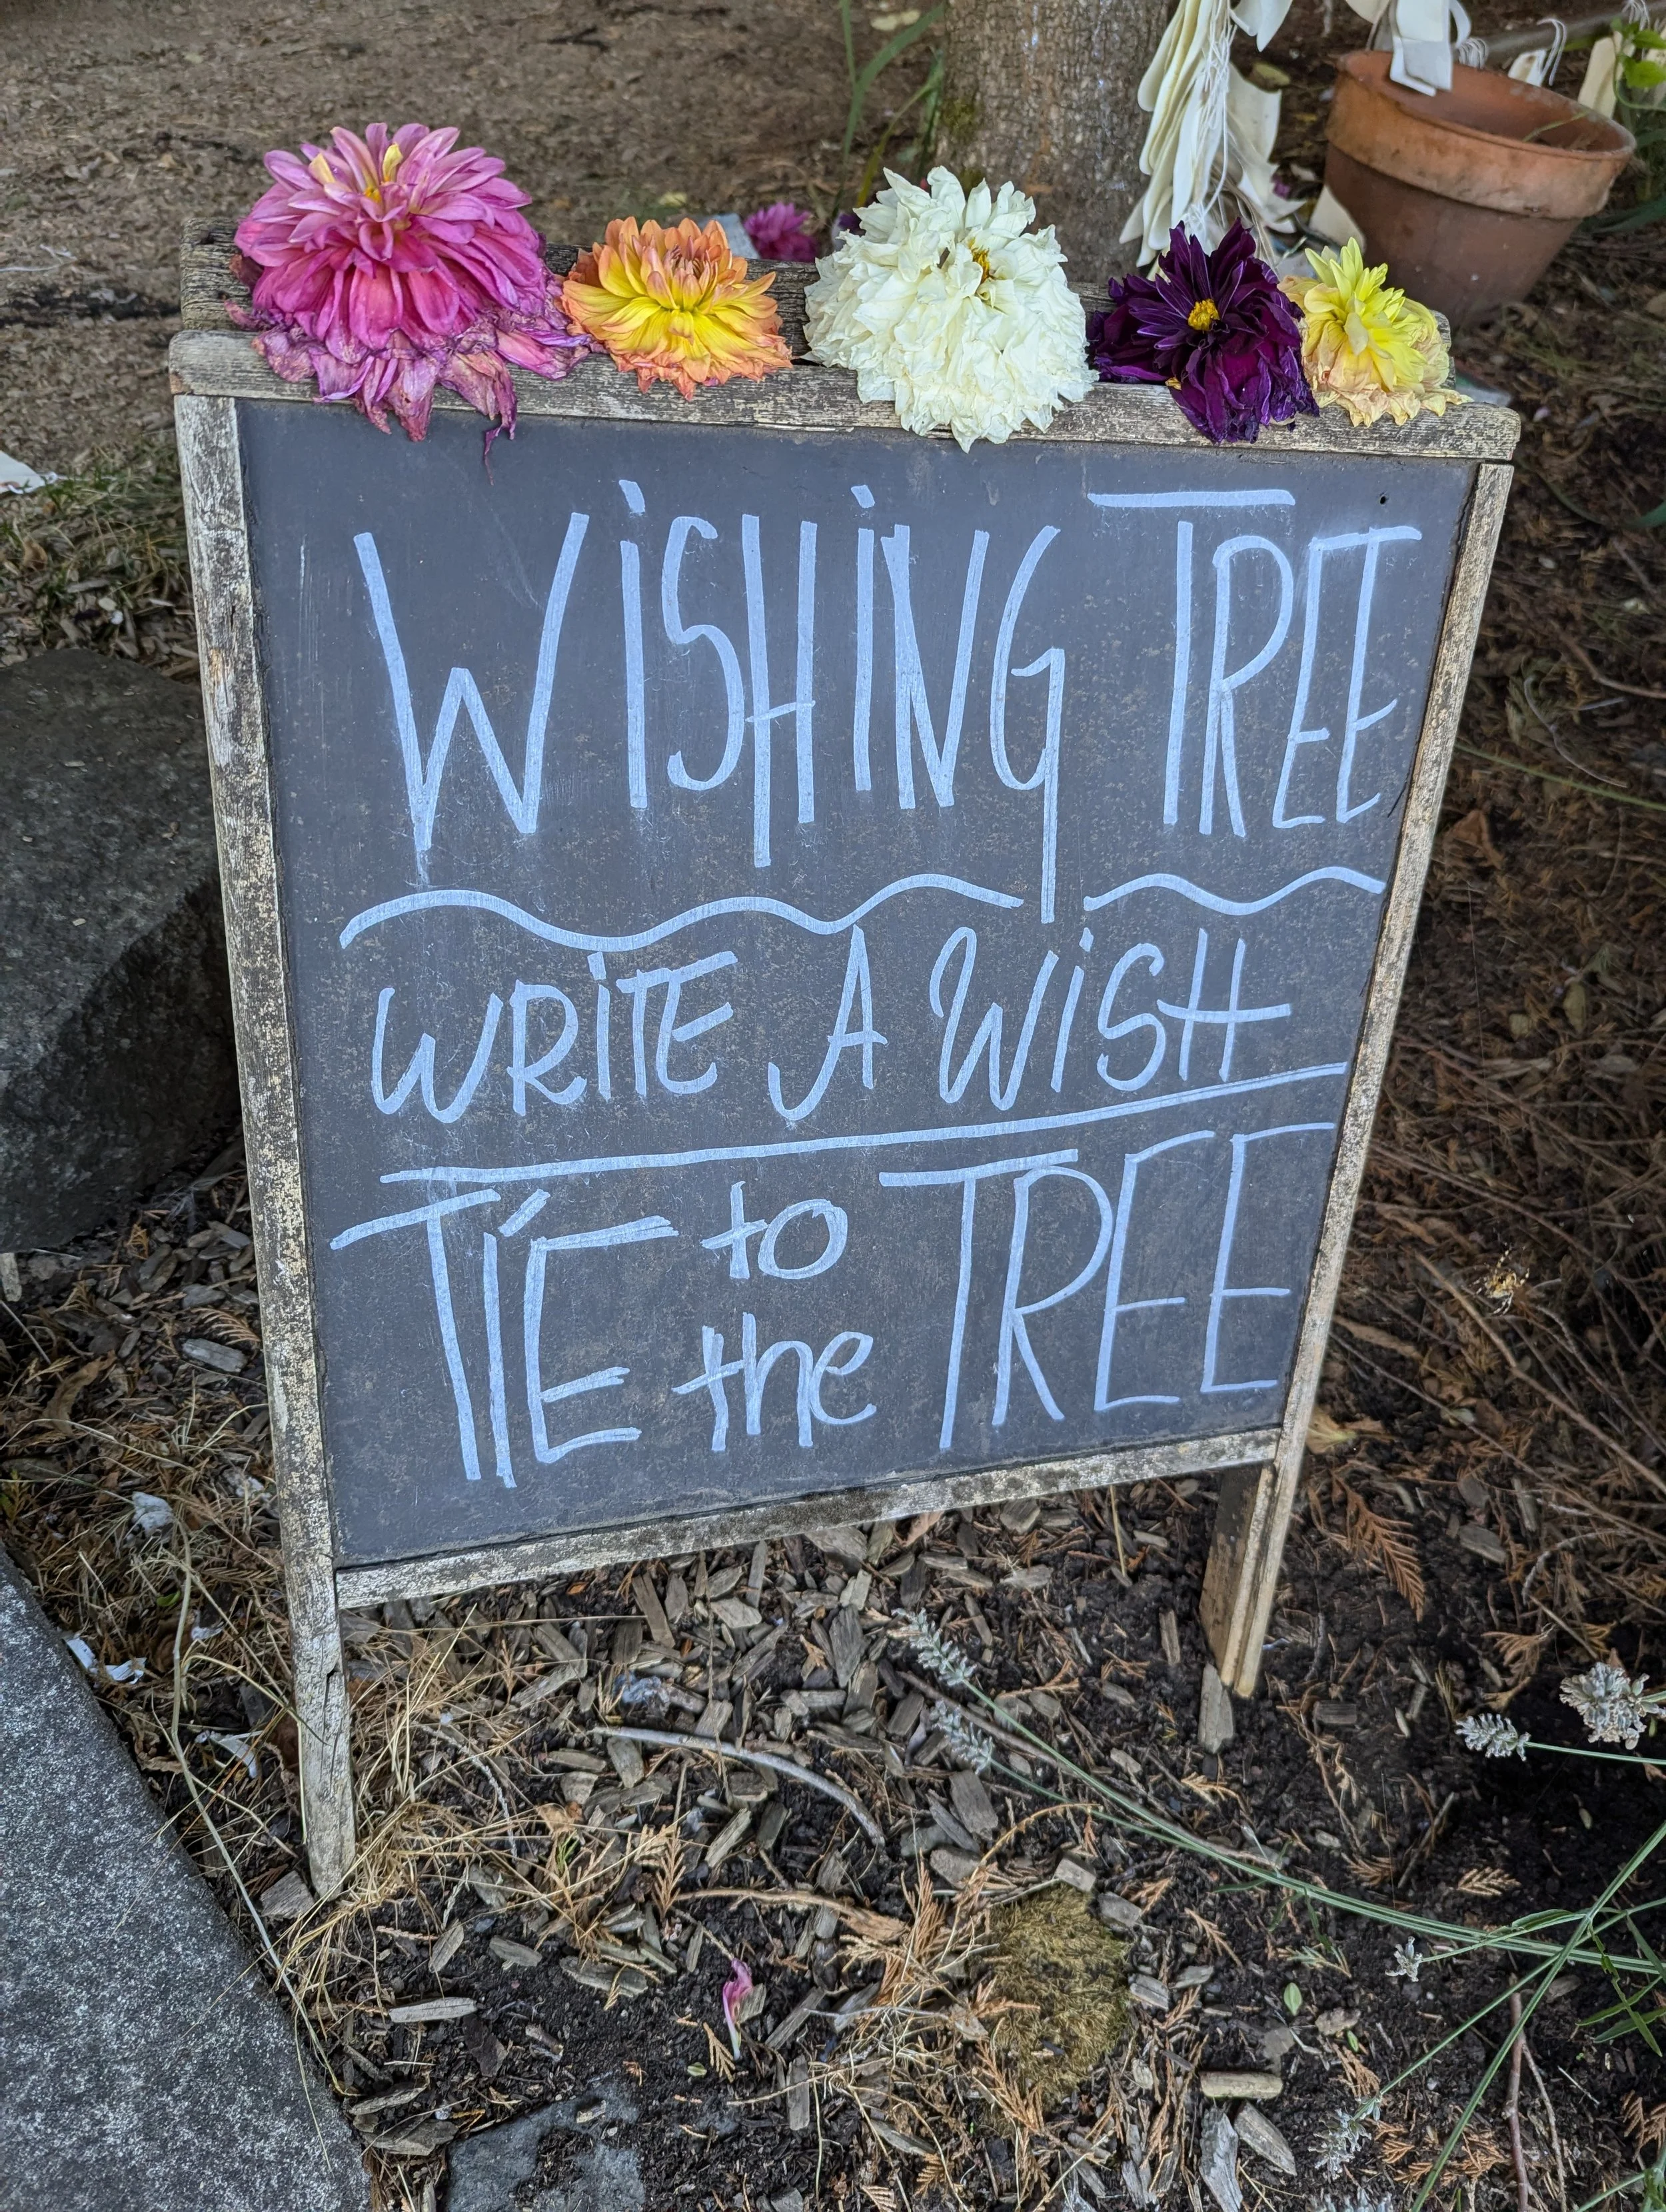 WiSHiNG TREE
WRiTE A WiSH
TiE to the TREE